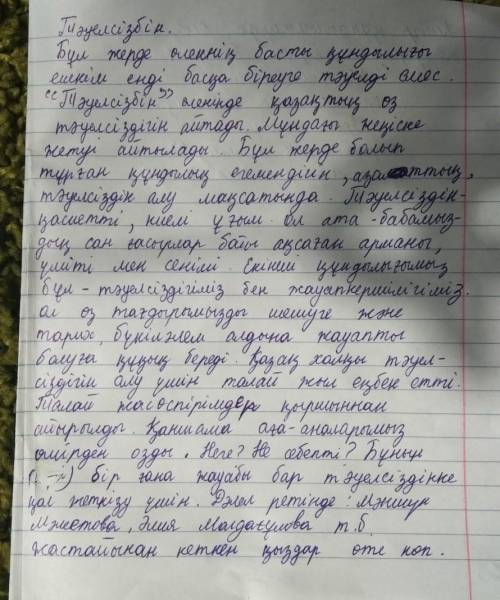 Тәуелсізбін.
Бұл жерде өлеңнің басты құндылығы
ешкім енді басқа біреуге тәуелді емес.
"Тәуелсізбін" өлеңінде қазақтың өз
тәуелсіздігін айтады. Мұндағы жеңіске
жетуі айтылады. Бұл жерде болып
тұрған құндылық егемендігін, азаттық,
тәуелсіздік алу мақсатында. Тәуелсіздік-
қасиетті, киелі ұғым. Ол ата-бабамыз-
дың сан ғасырлар бойы аңсаған арманы,
үміті мен сенімі. Екінші құндылығымыз
бұл - тәуелсіздігіміз бен жауапкершілігіміз.
ол өз тағдырымызды шешуге және
тарих, бүкіләлем алдына жауапты
болуға құқық береді. Қазақ халқы тәуел-
сіздігін алу үшін талай жыл еңбек етті.
Талай жасөспірімдер қыршыннан
айырылды. Қаншама аға-аналарымыз
өмірден озды. Неге? Не себепті? Бұның
бір ғана жауабы бар тәуелсіздікке
қол жеткізу үшін. Дәлел ретінде: Мәншүк
Мәметова, Әлия Молдағұлова т.б.
жастайынан кеткен қыздар өте көп.